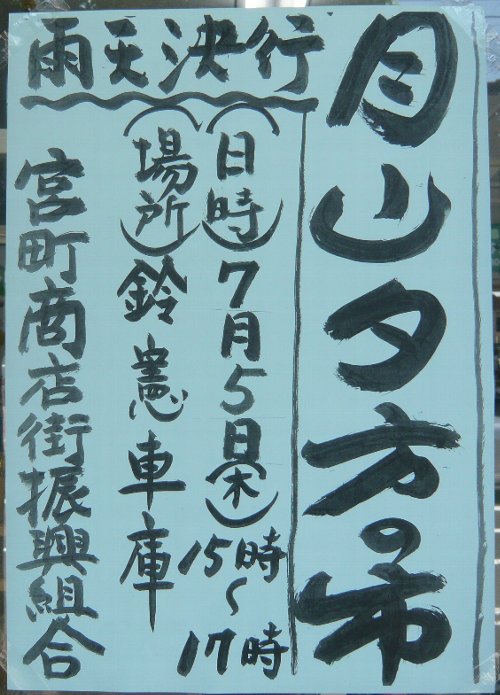 月山夕方の市
雨天決行
(日時)7月5日(木)
15時~17時
(場所)鈴憲車庫
宮町商店街振興組合